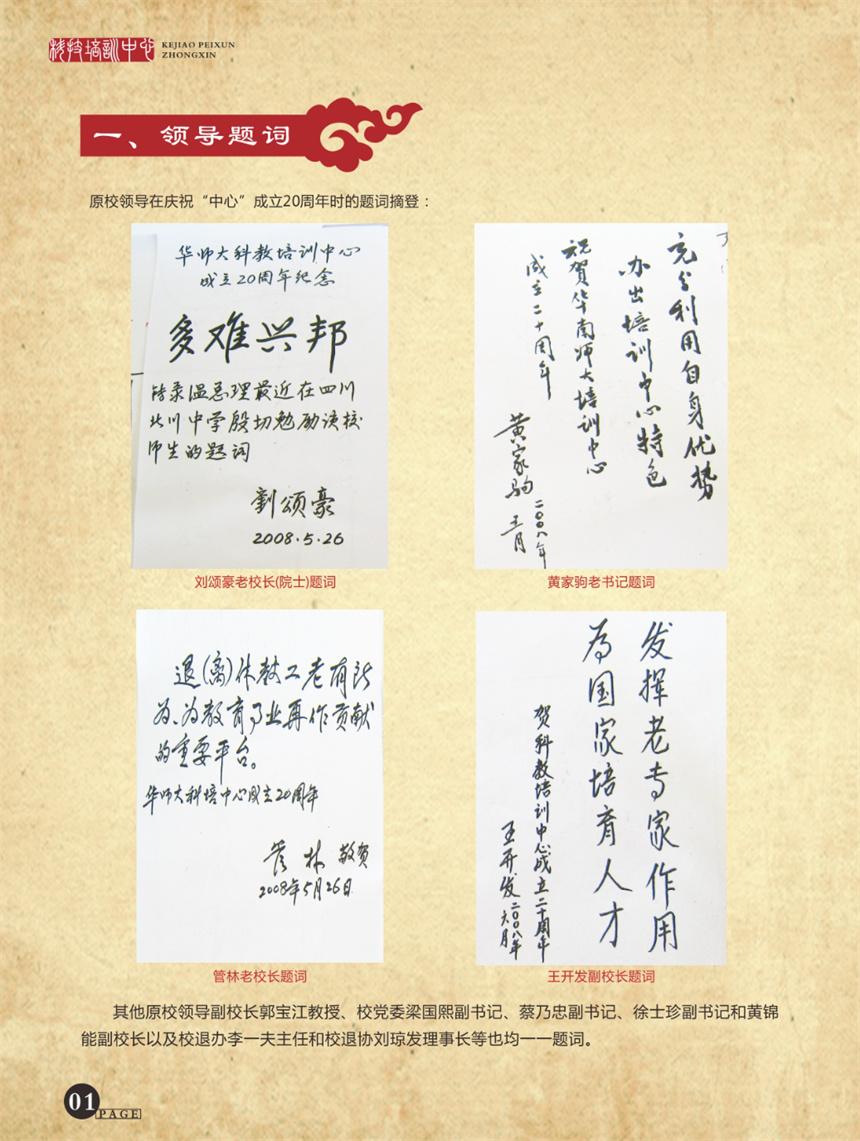 科技培训中心
KEJIAO PEIXUN
ZHONGXIN
一、领导题词
原校领导在庆祝“中心”成立20周年时的题词摘登：
华师大科教培训中心
成立20周年纪念
多难兴邦
转录温总理最近在四川
北川中学殷切勉励该校
师生的题词
劉颂豪
2008.5.26
刘颂豪老校长(院士)题词
充分利用自身优势
办出培训中心特色
祝贺华南师大培训中心
成立二十周年
黄家驹
二〇〇八年
五月
黄家驹老书记题词
退(离)休教工老有所
为、为教育事业再作贡献
的重要平台。
华师大科培中心成立20周年
管林 敬贺
2008年5月26日
管林老校长题词
发挥老专家作用
為国家培育人才
贺科教培训中心成立二十周年
王开发二〇〇八年
六月
王开发副校长题词
其他原校领导副校长郭宝江教授、校党委梁国熙副书记、蔡乃忠副书记、徐士珍副书记和黄锦
能副校长以及校退办李一夫主任和校退协刘琼发理事长等也均一一题词。
01
PAGE